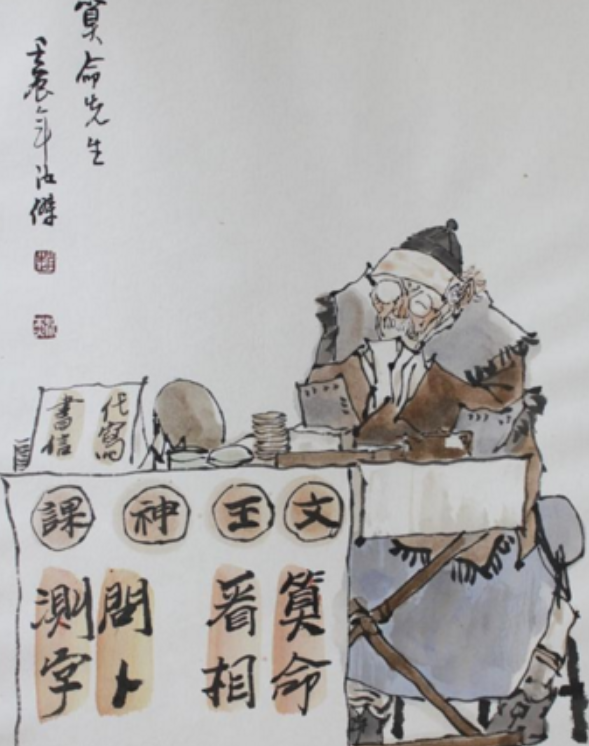 算命先生
壬辰年汝傑
代寫
書信
文王神課
算命
看相
問卜
測字